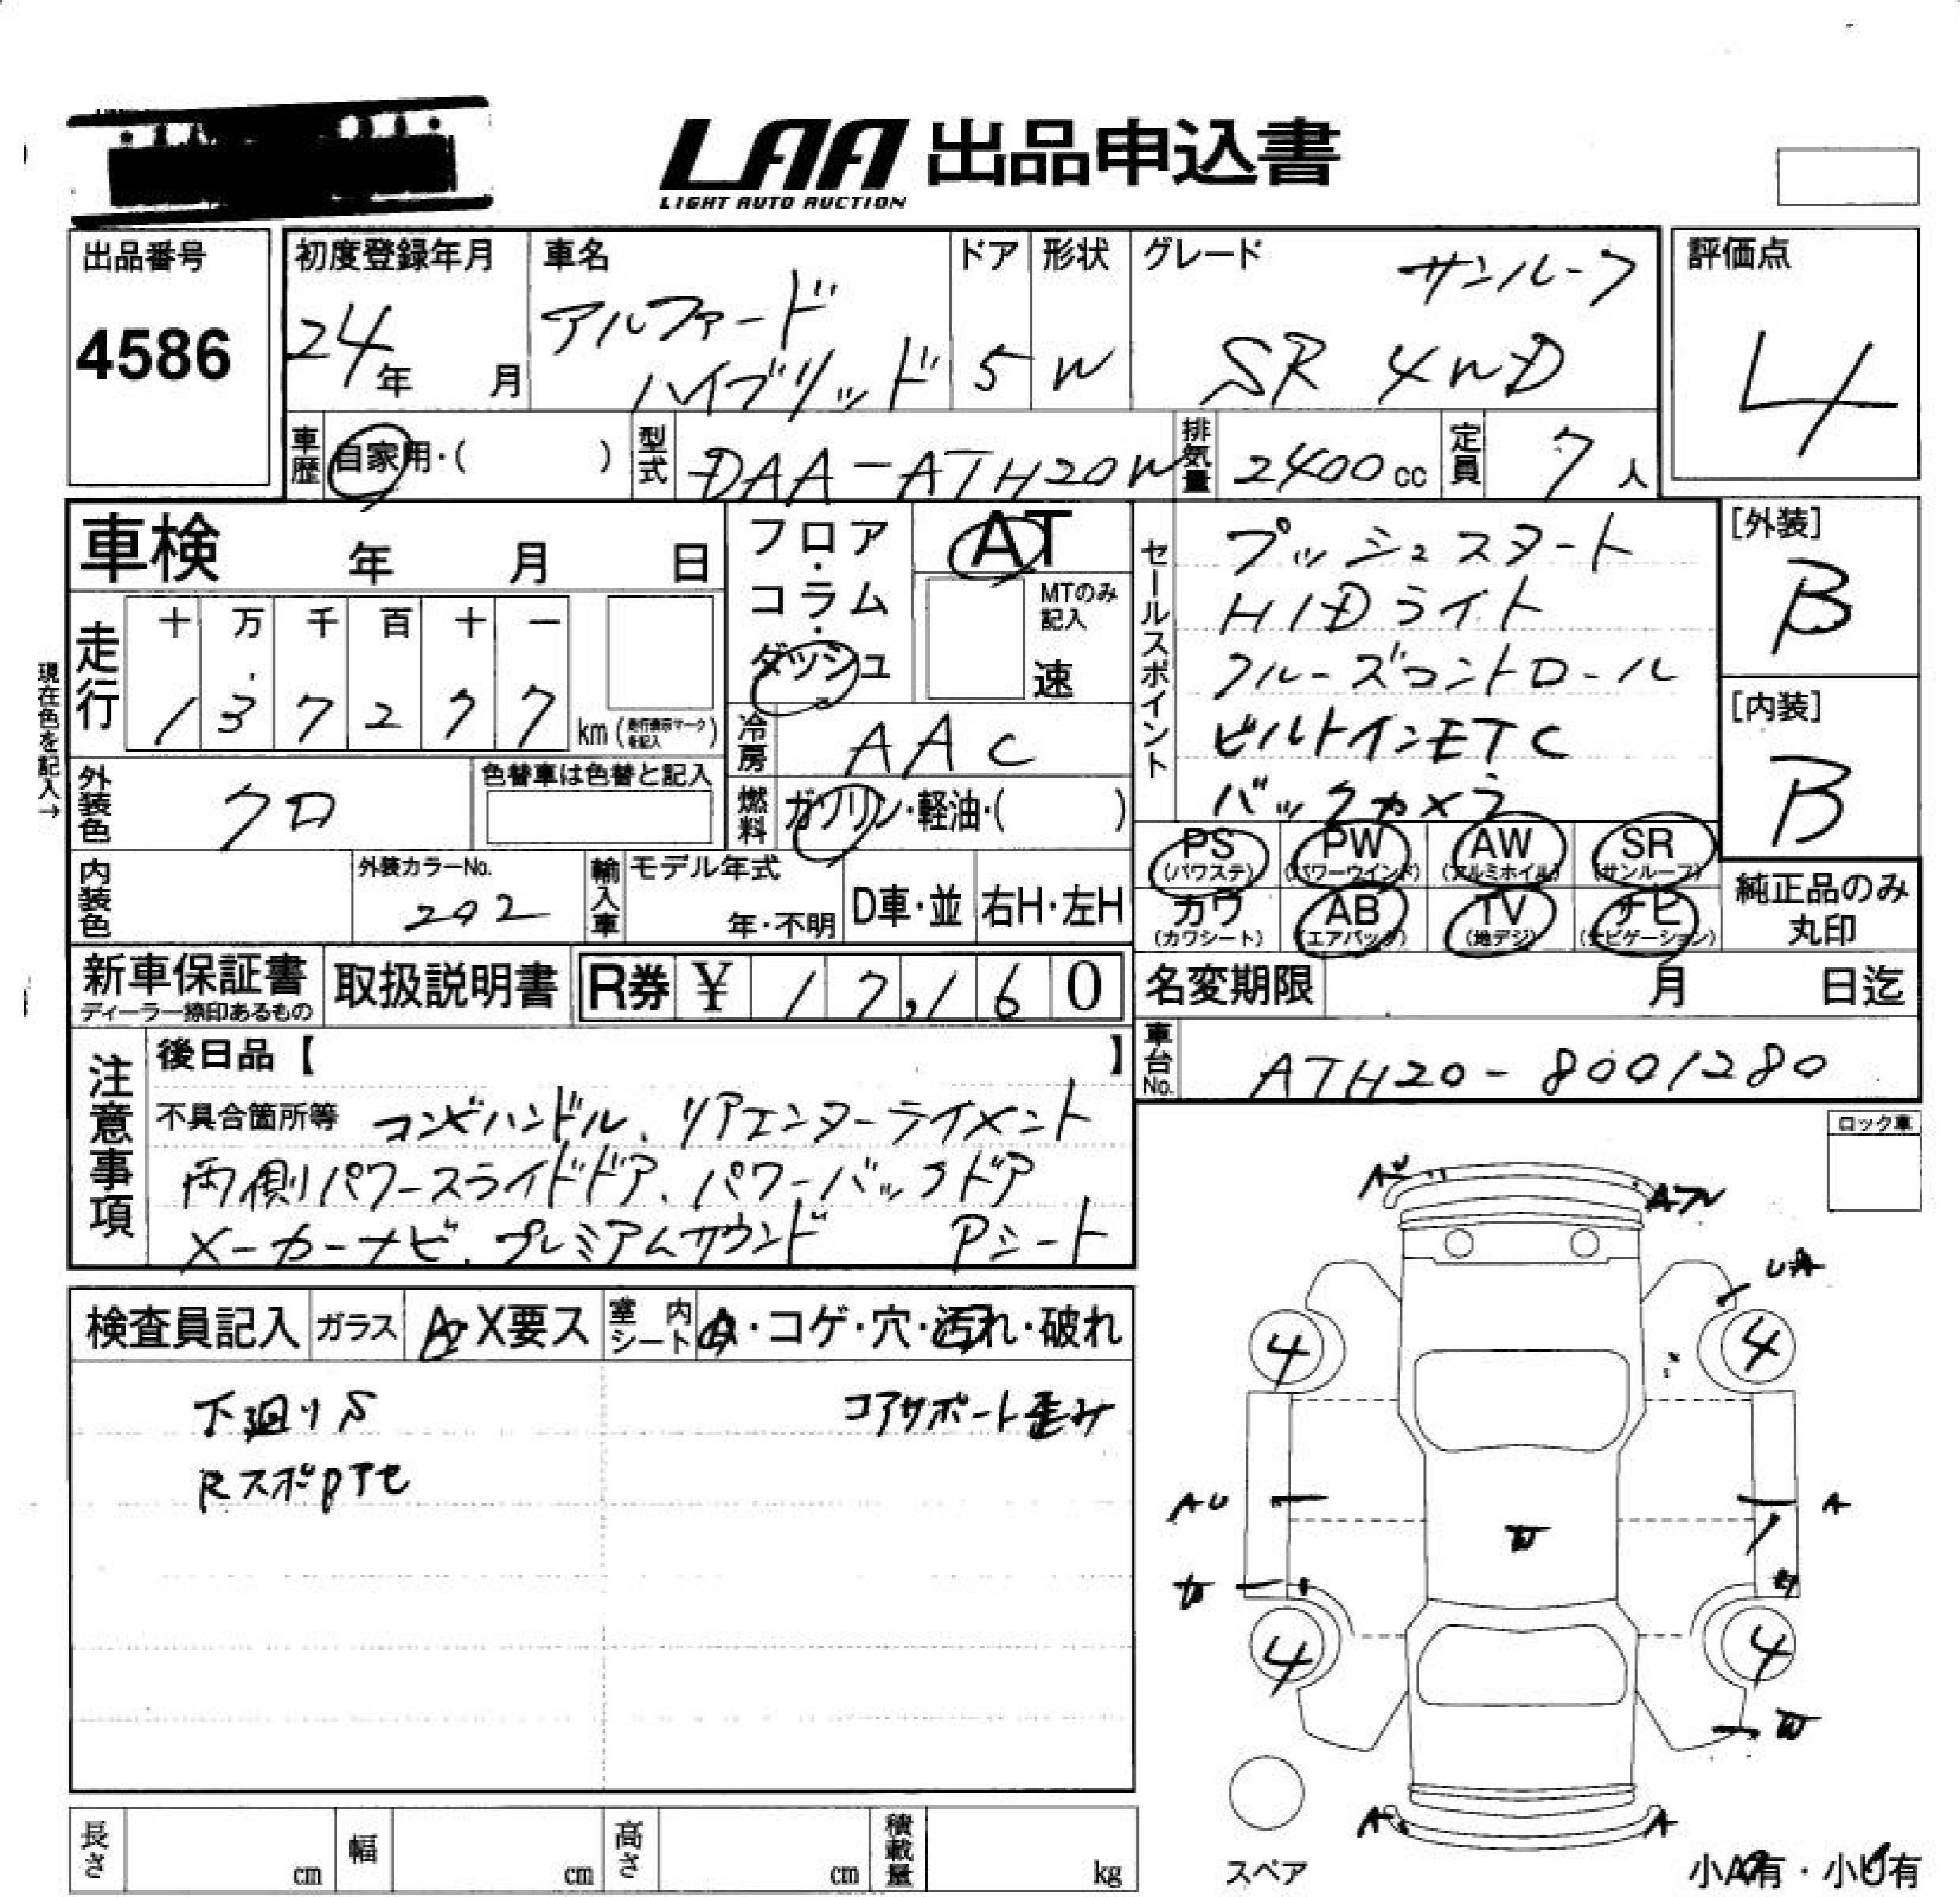 LAA 出品申込書
LIGHT AUTO AUCTION
出品番号
4586
初度登録年月
24年 月
車名
アルファード
ハイブリッド
ドア
5
形状
W
グレード
サンルーフ
SR 4WD
評価点
4
車歴
自家用・( )
型式
DAA-ATH20W
排気量
2400cc
定員
7人
車検 年 月 日
フロア・
コラム・
ダッシュ
AT
MTのみ
記入
速
現在色を記入→
走行
十 万 千 百 十 一
1 3 7 2 7 7 km
冷房
AAC
外装色
クロ
色替車は色替と記入
燃料
ガソリン・軽油・( )
セールスポイント
プッシュスタート
HIDライト
クルーズコントロール
ビルトインETC
バックカメラ
[外装]
B
[内装]
B
PS
(パワステ)
PW
(パワーウインド)
AW
(アルミホイル)
SR
(サンルーフ)
カワ
(カワシート)
AB
(エアバック)
TV
(地デジ)
ナビ
(ナビゲーション)
純正品のみ
丸印
内装色
外装カラーNo.
202
輸入車
モデル年式
年・不明
D車・並
右H・左H
新車保証書
ディーラー捺印あるもの
取扱説明書
R券 ¥ 17,160
名変期限 月 日迄
車台No.
ATH20-8001280
注意事項
後日品【 】
不具合箇所等 コンビハンドル、リアエンターテイメント
両側パワースライドドア、パワーバックドア
メーカーナビ、プレミアムサウンド Pシート
ロック車
検査員記入
ガラス
A・X要ス
室内
シート
・コゲ・穴・汚れ・破れ
下廻りS
コアサポート歪み
RスポPアセ
AU
UA
4
4
AU
A
W
4
4
W
A
A
スペア
小A有・小U有
長さ cm
幅 cm
高さ cm
積載量 kg